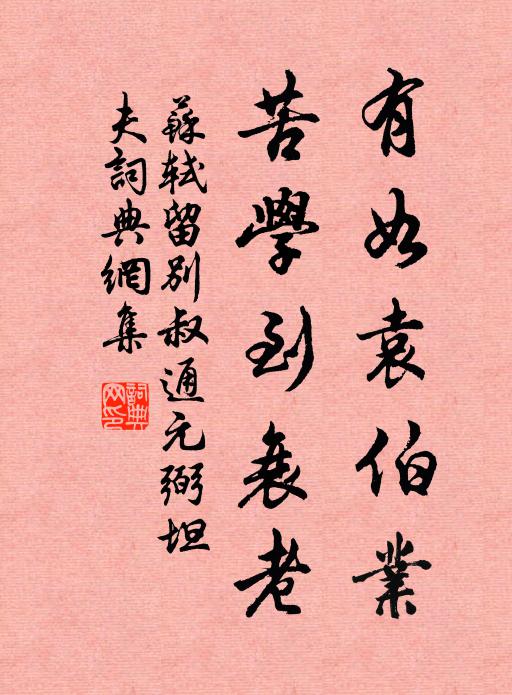 有如袁伯業
苦學到衰老
蘇軾留別叔通元弼坦
夫詞典網集
詞典
网印